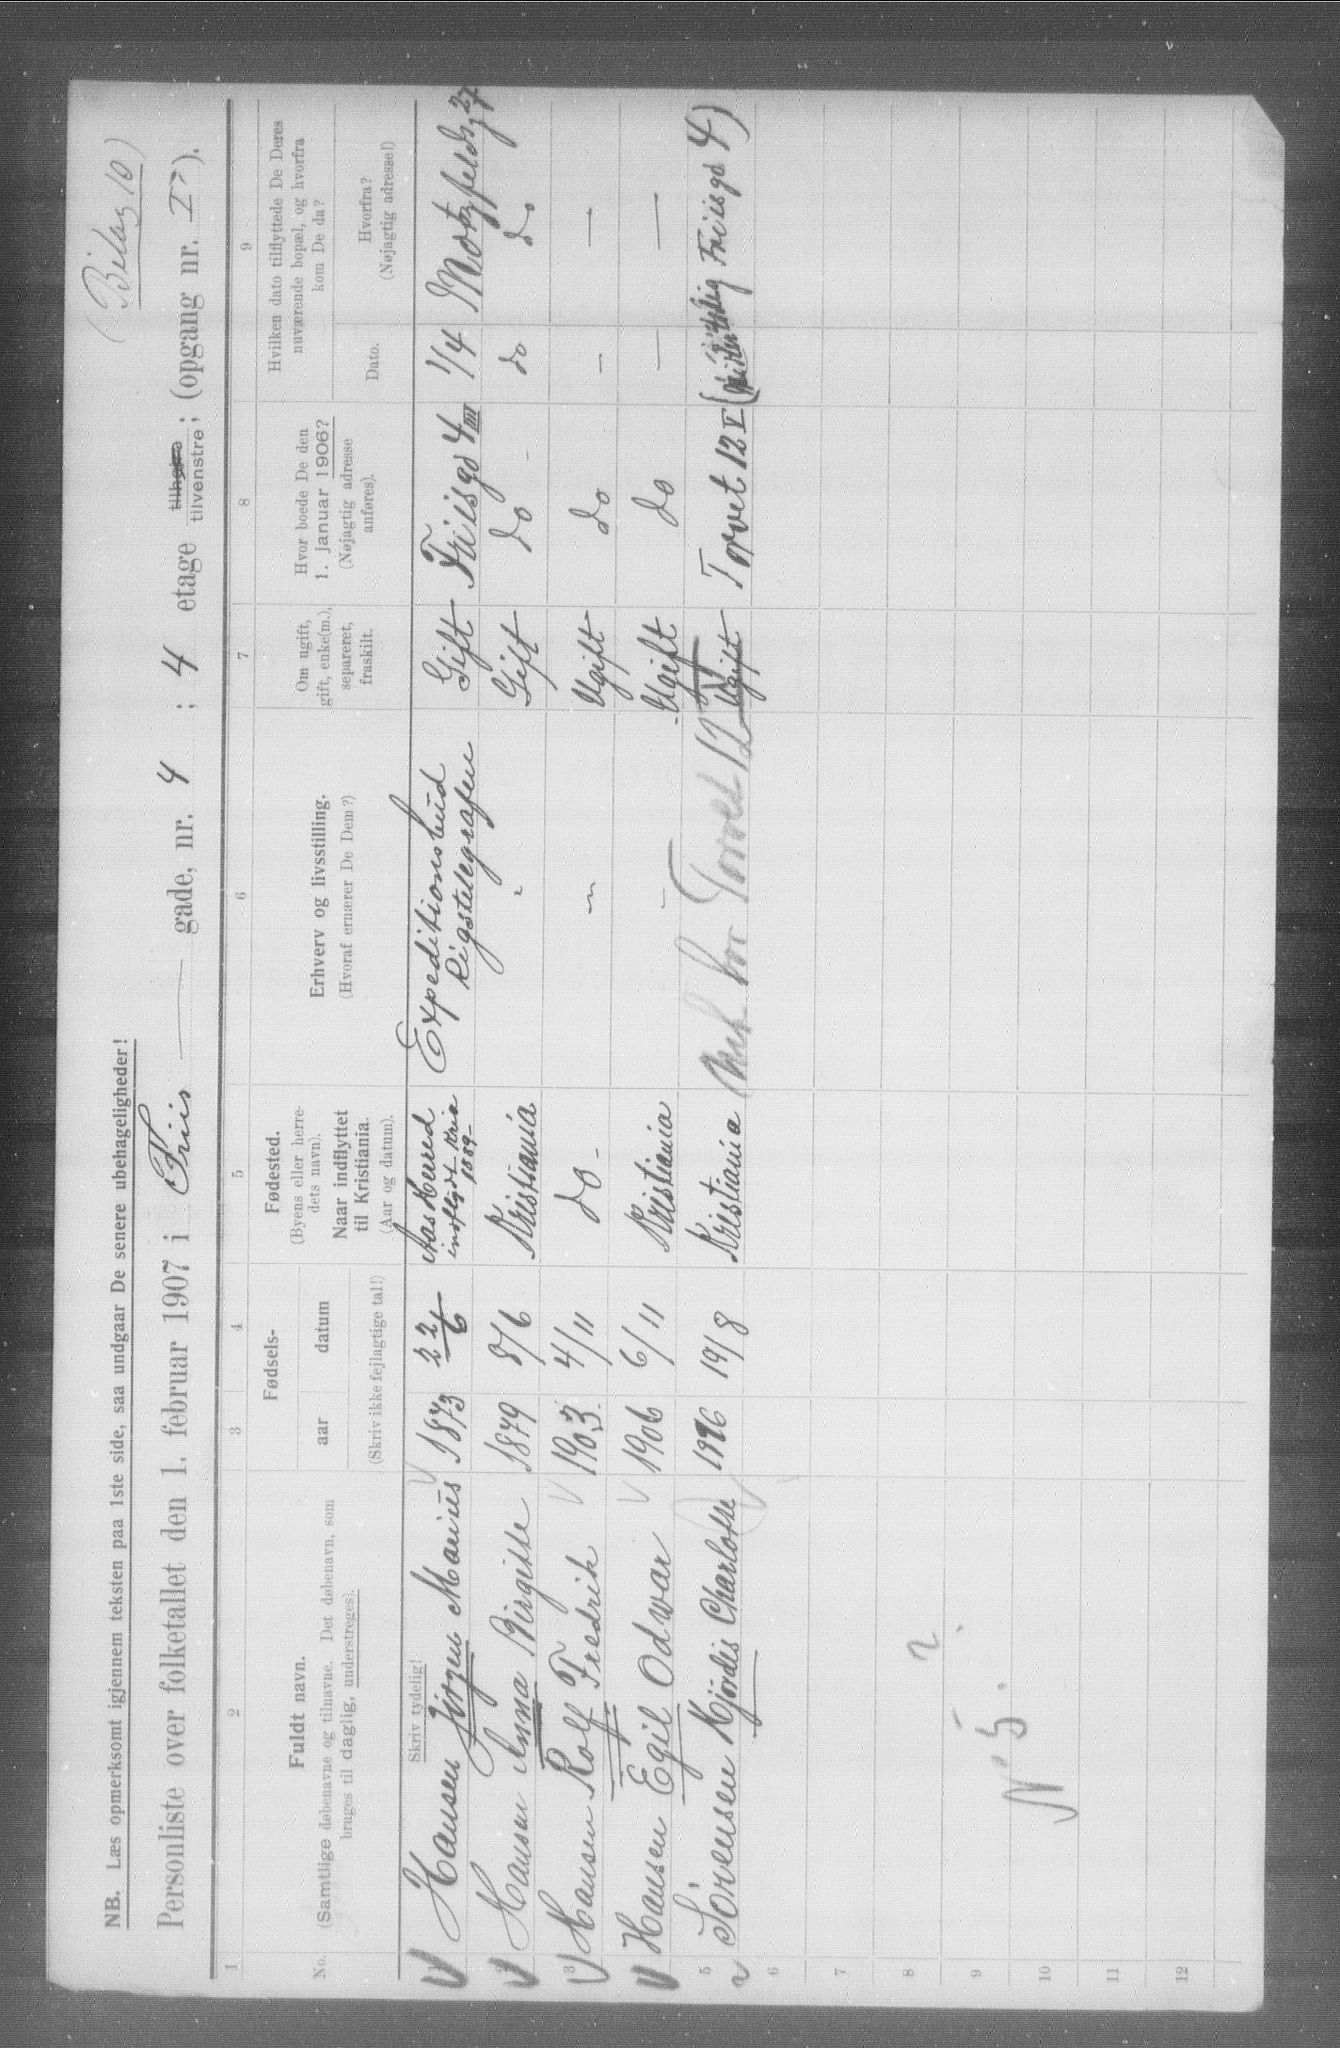 (Bilag 10)
NB. Læs opmerksomt igjennem teksten paa 1ste side, saa undgaar De senere ubehageligheder!
Personliste over folketallet den 1. februar 1907 i Friis gade, nr. 4 ; 4 etage tilhøire tilvenstre ; (opgang nr. I ).
1 2 3 4 5 6 7 8 9
No.
Fuldt navn.
(Samtlige døbenavne og tilnavne. Det døbenavn, som
bruges til daglig, understreges).
Fødsels-
aar datum
(Skriv ikke fejlagtige tal!)
Fødested.
(Byens eller herre-
dets navn).
Naar indflyttet
til Kristiania.
(Aar og datum).
Erhverv og livsstilling.
(Hvoraf ernærer De Dem?)
Om ugift,
gift, enke(m.),
separeret,
fraskilt.
Hvor boede De den
1. januar 1906?
(Nøjagtig adresse
anføres).
Hvilken dato tilflyttede De Deres
nuværende bopæl, og hvorfra
kom De da?
Dato.
Hvorfra?
(Nøjagtig adresse!)
Skriv tydelig!
1 Hansen Jörgen Marius 1873 22/6 Aas Herred indflydt Kria 1889- Expeditionsbud Rigstelegrafen Gift Friisgd 4 III 1/4 Motzfeldsg 27
2 Hansen Anna Birgitte 1879 8/6 Kristiania - Gift do - do do
3 Hansen Rolf Fredrik 1903. 4/11 do - - Ugift do - -
4 Hansen Egil Odvar 1906 6/11 Kristiania - Ugift do - -
5 Sörensen Hjördis Charlotte 1896 19/8 Kristiania bor Torvet 12 V Ugift Torvet 12 V ( Friisgd 4)
6
7
8
9
10
11
12
N 5.